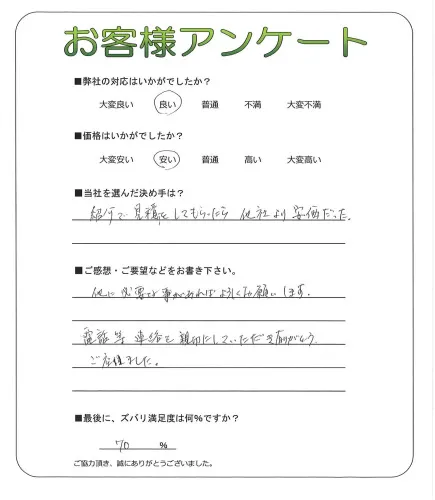 お客様アンケート
■弊社の対応はいかがでしたか?
大変良い 良い 普通 不満 大変不満
■価格はいかがでしたか?
大変安い 安い 普通 高い 大変高い
■当社を選んだ決め手は?
紹介で見積をしてもらったら 他社より安価だった。
■ご感想・ご要望などをお書き下さい。
他に必要な事があればよろしくお願いします。
電話等 連絡を親切にしていただき有がとう
ご座いました。
■最後に、ズバリ満足度は何%ですか?
70 %
ご協力頂き、誠にありがとうございました。